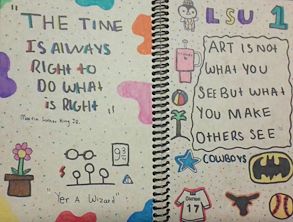 "THE TIME
IS ALWAYS
RIGHT TO
DO WHAT
IS RIGHT"
Martin Luther King Jr.
9 3/4
"Yer A Wizard"
LSU 1
ART IS NOT
WHAT YOU
SEE BUT WHAT
YOU MAKE
OTHERS SEE
COWBOYS
17